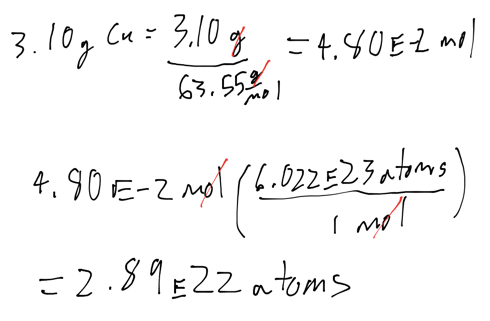 3.10g Cu = 3.10 g / 63.55 g/mol = 4.80E-2 mol
4.80E-2 mol (6.022E23 atoms / 1 mol)
= 2.89E22 atoms